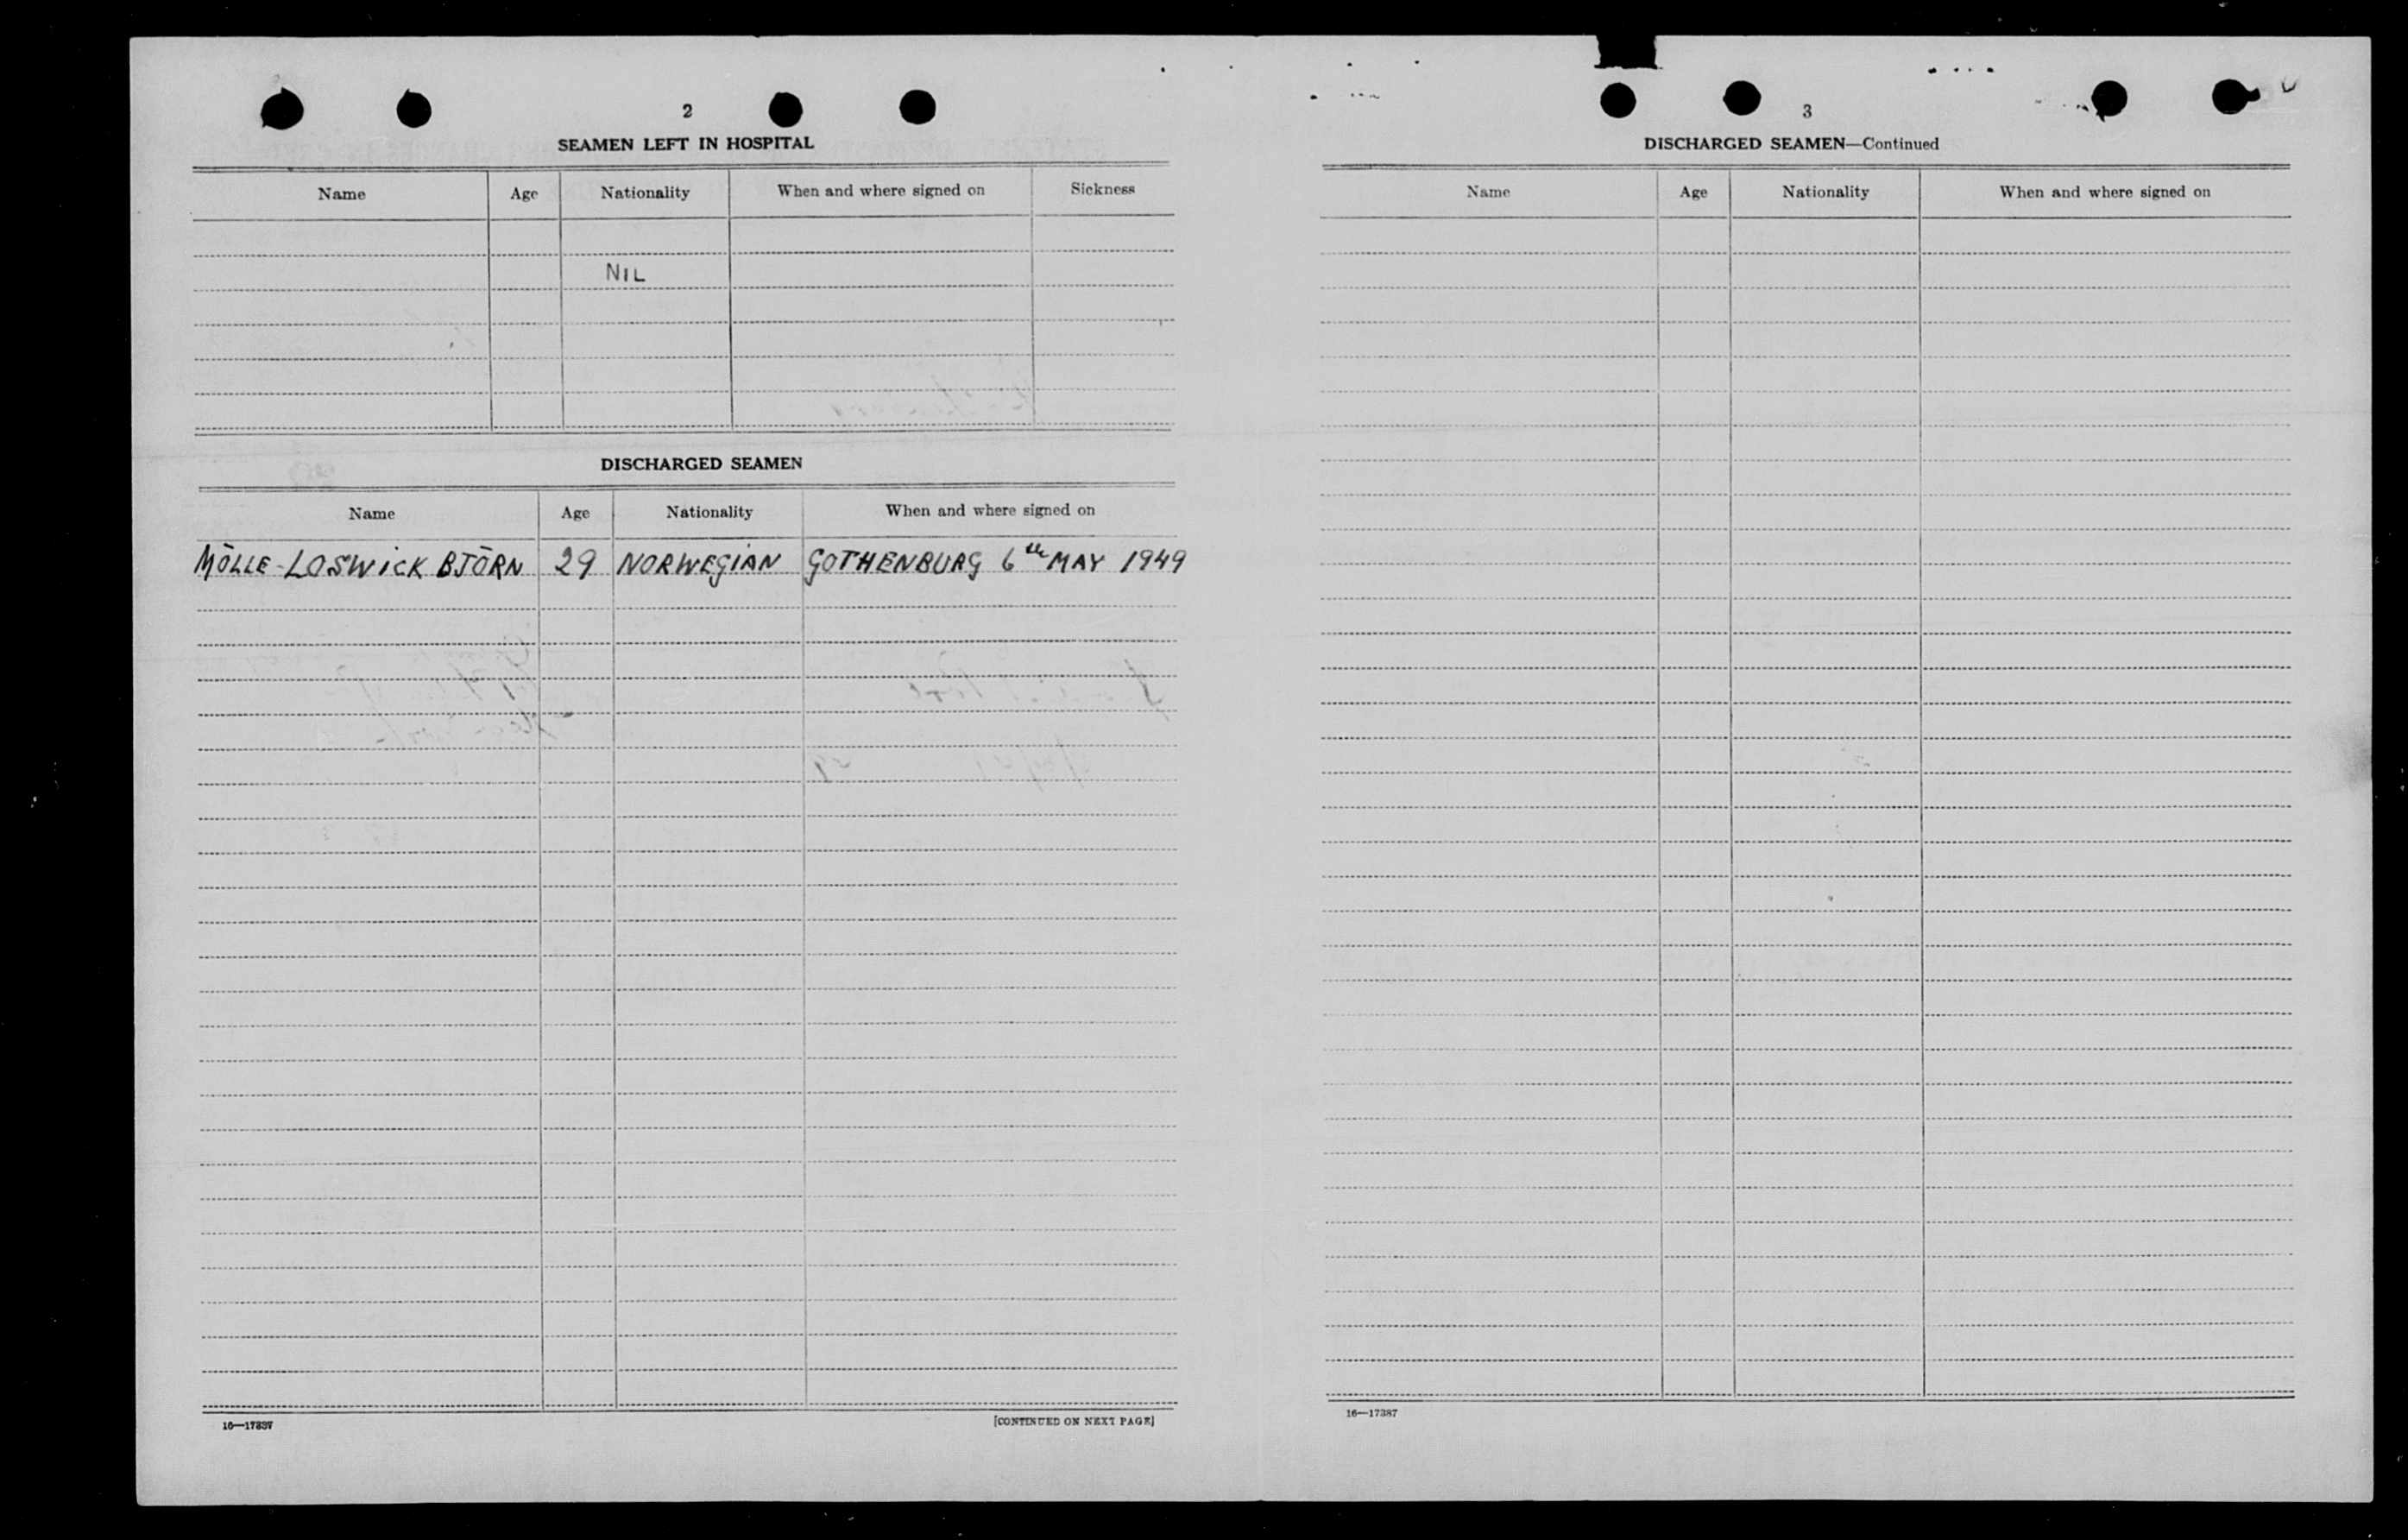 2
SEAMEN LEFT IN HOSPITAL
Name Age Nationality When and where signed on Sickness
NIL
DISCHARGED SEAMEN
Name Age Nationality When and where signed on
MÖLLE-LOSWICK BJÖRN 29 NORWEGIAN GOTHENBURG 6th MAY 1949
16—17387
[CONTINUED ON NEXT PAGE]
3
DISCHARGED SEAMEN—Continued
Name Age Nationality When and where signed on
16—17387